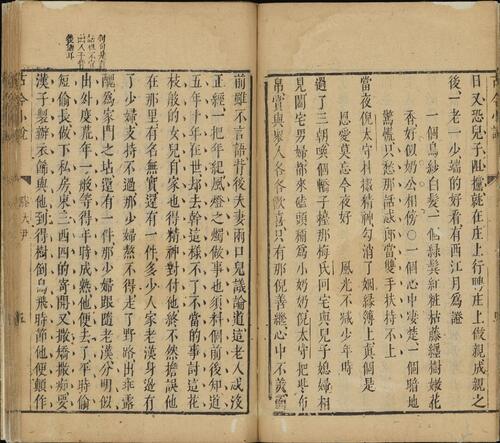 日又恐兒子阻擋就在庄上行聘庄上做親成親之
後一老一少端的好看有西江月爲證
一個烏紗白髮一個綠鬢紅粧枯藤纏樹嫩花
香好似奶公相傍○一個心中凄楚一個暗地
驚慌只愁那話忒郎當雙手扶持不上
當夜倪太守抖擻精神勾消了姻緣簿上眞個是
恩愛莫忘今夜好 風光不減少年時
過了三朝喚個轎子擡那梅氏回宅與兒子媳婦相
見闔宅男婦都來磕頭稱爲小奶奶倪太守把些布
帛賞與衆人各各歡喜只有那倪善繼心中不美面
前雖不言語背後夫妻兩口兒議論道這老人忒沒
正經一把年紀風燈之燭做事也須料個前後知道
五年十年在世却去幹這樣不了不當的事討這花
枝般的女兒自家也得精神對付他終不然擔誤他
在那里有名無實還有一件多少人家老漢身邊有
了少婦支持不過那少婦熬不得走了野路出乖露
醜爲家門之玷還有一件那少婦跟隨老漢分明似
出外度荒年一般等得年時成熟他便去了平時偷
短偷長做下私房東三西四的寄開又撒嬌撒痴要
漢子製辦衣飾與他到得樹倒鳥飛時節他便顛作
古今小說
滕大尹
五